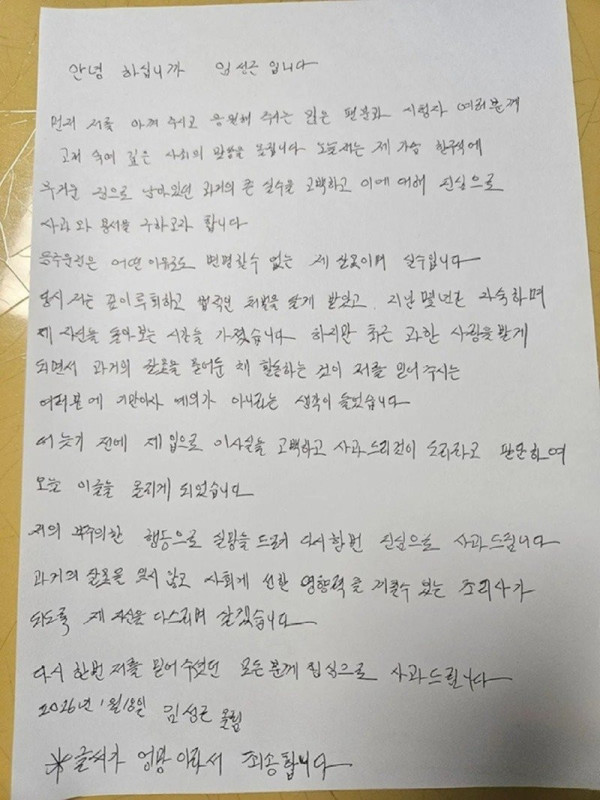 안녕 하십니까 임성근 입니다
먼저 저를 아껴 주시고 응원해 주시는 많은 팬분과 시청자 여러분께
고개 숙여 깊은 사죄의 말씀을 올립니다 오늘 저는 제 가슴 한구석에
무거운 짐으로 남아있던 과거의 큰 실수을 고백하고 이에 대해 진심으로
사과 와 용서를 구하고자 합니다
음주운전은 어떤 이유로도 변명할수 없는 제 잘못이며 실수입니다
당시 저는 깊이 후회하고 법적인 처벌을 달게 받았고 지난 몇년간 자숙하며
제 자신을 돌아보는 시간을 가졌습니다 하지만 최근 과한 사랑을 받게
되면서 과거의 잘못을 묻어둔 채 활동하는 것이 저를 믿어주시는
여러분에 기만이자 예의가 아니라는 생각이 들었습니다
더 늦기 전에 제 입으로 이사실을 고백하고 사과 드리것이 도리라고 판단하여
오늘 이글을 올리게 되었습니다
저의 부주의한 행동으로 실망을 드려 다시한번 진심으로 사과드립니다
과거의 잘못을 잊지 않고 사회게 선한 영향력 을 끼칠수 있는 조리사가
되도록 제 자신을 다스리며 살겠습니다
다시 한번 저를 믿어 주셨던 모든 분께 진심으로 사과드립니다
2026년 1월 18일 임성근 올림
※글씨가 엉망 이라서 죄송합니다